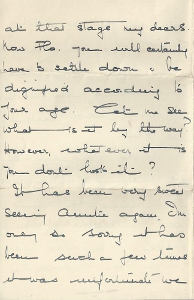 at that stage my dears.
Now Flo. you will certainly
have to settle down & be
dignified according to
your age. Let me see
what is it by the way.
However, whatever it is
you don't look it!
It has been very nice
seeing Auntie again. I'm
only so sorry it has
been such a few times
it was unfortunate we